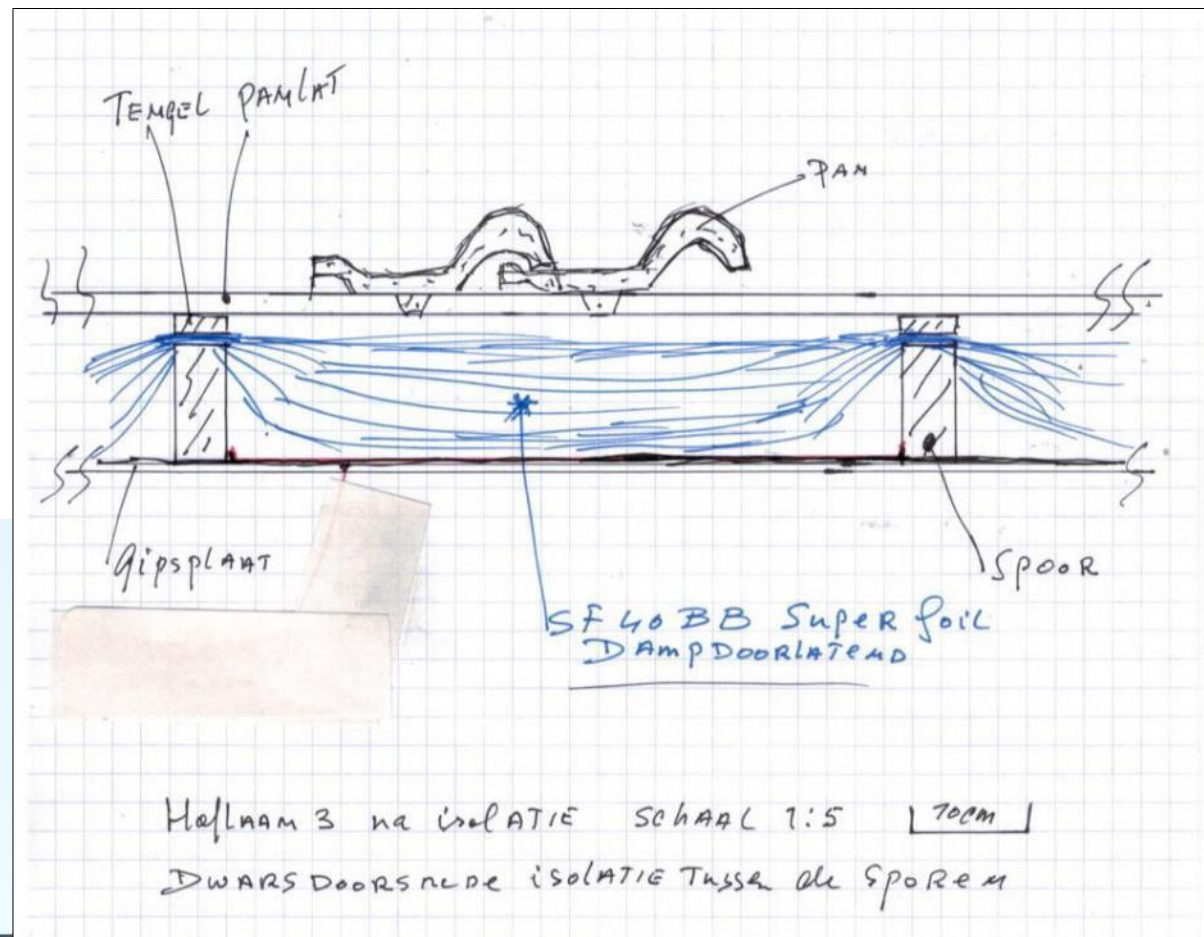 TENGEL PANLAT
PAN
GipsplAAT
SPOOR
SF 40 BB SupeR foil
DAmpDOORlATenD
HoflAAN 3 na isolATIE SCHAAL 1:5 10cm
DWARSDOORSNEDE isolATIE Tussen de SpoRen